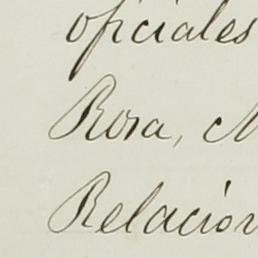 oficiales
Rosa,
Relación